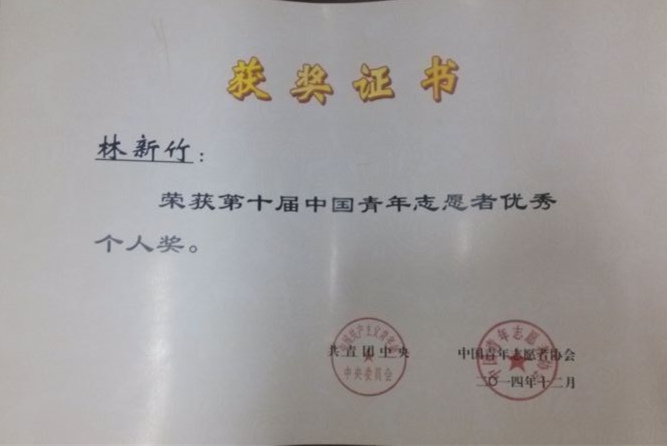 获奖证书
林新竹：
荣获第十届中国青年志愿者优秀
个人奖。
共青团中央
中央委员会
中国青年志愿者协会
二〇一四年十二月